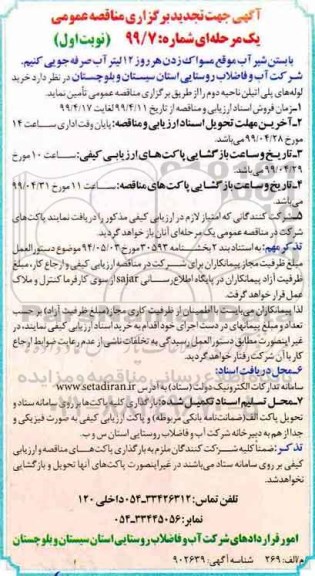 آگهی جهت تجدید برگزاری مناقصه عمومی
یک مرحله‌ای شماره: ۹۹/۷ (نوبت اول)
با بستن شیر آب موقع مسواک زدن هر روز ۱۲ لیتر آب صرفه جویی کنیم.
شرکت آب و فاضلاب روستایی استان سیستان و بلوچستان در نظر دارد خرید
لوله‌های پلی اتیلن ناحیه دوم را از طریق برگزاری مناقصه عمومی تأمین نماید.
۱-زمان فروش اسناد ارزیابی و مناقصه از تاریخ ۹۹/۴/۱۱ لغایت ۹۹/۴/۱۷
۲-آخرین مهلت تحویل اسناد ارزیابی و مناقصه: پایان وقت اداری ساعت ۱۴
مورخ ۹۹/۰۴/۲۸ می‌باشد.
۳-تاریخ و ساعت بازگشایی پاکت‌های ارزیابی کیفی: ساعت ۱۰ مورخ
۹۹/۰۴/۲۹ می‌باشد.
۴-تاریخ و ساعت بازگشایی پاکت‌های مناقصه: ساعت ۱۱ مورخ ۹۹/۰۴/۳۱
می‌باشد.
۵-شرکت کنندگانی که امتیاز لازم در ارزیابی کیفی مذکور را دریافت نمایند پاکت‌های
شرکت در مناقصه عمومی یک مرحله‌ای آنان باز خواهد گردید.
تذکر مهم: به استناد بند ۲ بخشنامه ۳۰۵۹۳ مورخ ۹۴/۰۵/۰۳ موضوع دستورالعمل
مبلغ ظرفیت مجاز پیمانکاران برای شرکت در مناقصه ارزیابی کیفی و ارجاع کار، مبلغ
ظرفیت آزاد پیمانکاران در پایگاه اطلاع رسانی sajar از سوی کارفرما کنترل و ملاک
عمل قرار خواهد گرفت.
لذا پیمانکاران می‌بایست با اطمینان از ظرفیت کاری مجاز (مبلغ ظرفیت آزاد) بر حسب
تعداد و مبلغ پیمانهای در دست اجرای خود اقدام به خرید اسناد ارزیابی کیفی نمایند، در
غیر اینصورت مطابق دستورالعمل رسیدگی به تخلفات ناشی از عدم رعایت ضوابط ارجاع
کار با آن شرکت رفتار خواهد گردید.
۶-محل دریافت اسناد:
سامانه تدارکات الکترونیک دولت (ستاد) به آدرس www.setadiran.ir
۷-محل تسلیم اسناد تکمیل شده: بارگذاری کلیه پاکت‌ها بر روی سامانه ستاد و
تحویل پاکت الف (ضمانت‌نامه بانکی مربوطه) و پاکت ارزیابی کیفی به صورت فیزیکی و
جدا از هم به دبیرخانه شرکت آب و فاضلاب روستایی استان س و ب.
تذکر: ضمناً کلیه شرکت کنندگان ملزم به بارگذاری پاکت‌های مناقصه و ارزیابی
کیفی بر روی سامانه ستاد می‌باشند در غیر اینصورت پاکت‌های آنها تحویل و بازگشایی
نخواهد شد.
تلفن تماس: ۳۳۴۲۶۳۱۲-۰۵۴ داخلی ۱۲۰
نمابر: ۳۳۴۴۵۰۵۶-۰۵۴
امور قراردادهای شرکت آب و فاضلاب روستایی استان سیستان و بلوچستان
م/الف: ۲۶۹ شناسه آگهی: ۹۰۲۶۳۹